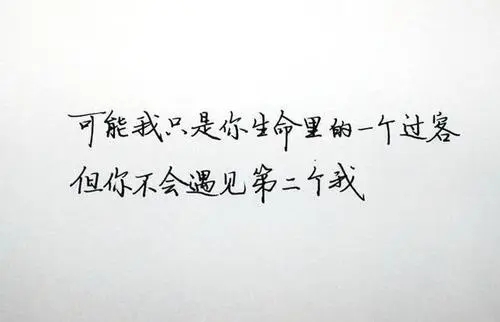 可能我只是你生命里的一个过客
但你不会遇见第二个我